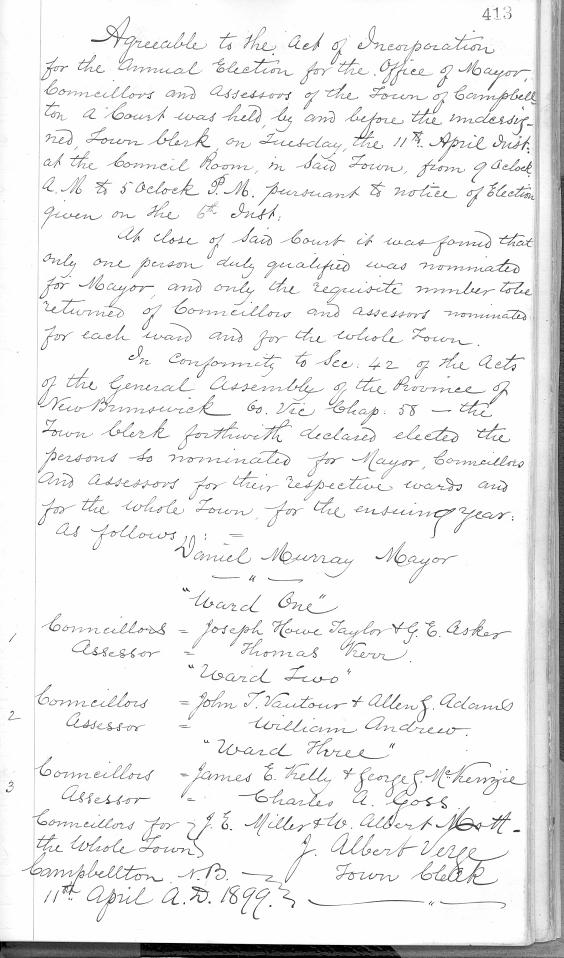 413
Agreeable to the Act of Incorporation
for the Annual Election for the Office of Mayor,
Councillors and Assessors of the Town of Campbell-
ton a Court was held, by and before the undersig-
ned, Town Clerk, on Tuesday, the 11th April Inst:
at the Council Room, in Said Town, from 9 Oclock
A.M to 5 Oclock P.M. pursuant to notice of Election
given on the 6th Inst:
At close of Said Court it was found that
only one person duly qualified was nominated
for Mayor, and only the requisite number to be
returned of Councillors and assessors nominated
for each ward and for the whole Town.
In Conformity to Sec. 42 of the Acts
of the General Assembly of the Province of
New Brunswick 60. Vic Chap. 58 — the
Town Clerk forthwith declared elected the
persons so nominated for Mayor, Councillors
and Assessors for their respective wards and
for the whole Town, for the ensuing year:
as follows, : =
Daniel Murray Mayor
— " —
"Ward One"
1 Councillors = Joseph Howe Taylor & G. E. Asker
Assessor = Thomas Kerr.
"Ward Two"
2 Councillors = John T. Vautour & Allen J. Adams
Assessor = William Andrew.
"Ward Three"
3 Councillors = James E. Kelly & George G. McKenzie
Assessor = Charles A. Goss
Councillors for the Whole Town } J. E. Miller & W. Albert Mott -
J. Albert Verge
Campbellton N.B. — Town Clerk
11th April A.D. 1899. } — " —